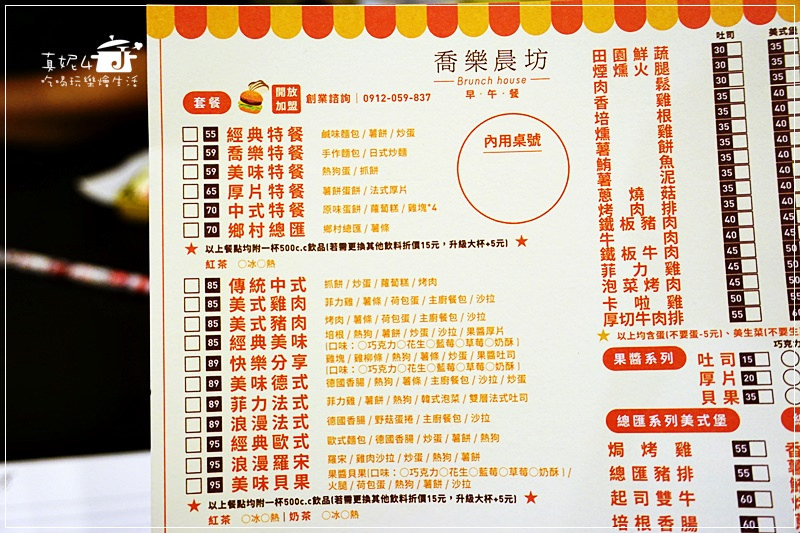 真妮ム
吃喝玩樂燴生活
喬樂晨坊
Brunch house
早.午.餐
套餐
開放加盟
創業諮詢│0912-059-837
內用桌號
55 經典特餐 鹹味麵包/薯餅/炒蛋
59 喬樂特餐 手作麵包/日式炒麵
59 美味特餐 熱狗蛋/抓餅
65 厚片特餐 薯餅蛋餅/法式厚片
70 中式特餐 原味蛋餅/蘿蔔糕/雞塊*4
70 鄉村總匯 鄉村總匯/薯條
★ 以上餐點均附一杯500c.c飲品(若需更換其他飲料折價15元，升級大杯+5元) ★
紅茶 ○冰○熱
85 傳統中式 抓餅/炒蛋/蘿蔔糕/烤肉
85 美式雞肉 菲力雞/薯條/荷包蛋/主廚餐包/沙拉
85 美式豬肉 烤肉/薯條/荷包蛋/主廚餐包/沙拉
85 經典美味 培根/熱狗/薯餅/炒蛋/沙拉/果醬厚片
(口味：○巧克力○花生○藍莓○草莓○奶酥)
89 快樂分享 雞塊/雞柳條/熱狗/薯條/炒蛋/果醬吐司
(口味：○巧克力○花生○藍莓○草莓○奶酥)
89 美味德式 德國香腸/熱狗/薯條/主廚餐包/沙拉/炒蛋
89 菲力法式 菲力雞/薯餅/熱狗/韓式泡菜/雙層法式吐司
89 浪漫法式 德國香腸/野菇蛋捲/主廚餐包/沙拉
95 經典歐式 歐式麵包/德國香腸/炒蛋/薯餅/熱狗
95 浪漫羅宋 羅宋/雞肉沙拉/炒蛋/熱狗/薯餅
95 美味貝果 果醬貝果(口味：○巧克力○花生○藍莓○草莓○奶酥)/
火腿/荷包蛋/熱狗/薯餅/沙拉
★ 以上餐點均附一杯500c.c飲品(若需更換其他飲料折價15元，升級大杯+5元) ★
紅茶 ○冰○熱│奶茶 ○冰○熱
吐司 美式堡
田園鮮蔬 30 35
煙燻火腿 30 35
肉鬆 30
香雞 35
培根 35
燻雞 35
薯餅 35
鮪魚 35
薯泥 35
蔥燒菇 35
烤肉排 35
鐵板豬肉 45
牛肉 45
鐵板牛肉 45
菲力雞 45
泡菜烤肉 45
卡啦雞 50
厚切牛肉排 55
★ 以上均含蛋(不要蛋-5元)、美生菜(不要生
果醬系列
巧克力
吐司 15
厚片 20
貝果 35
總匯系列美式堡
焗烤雞 55
總匯豬排 55
起司雙牛 60
培根香腸 60